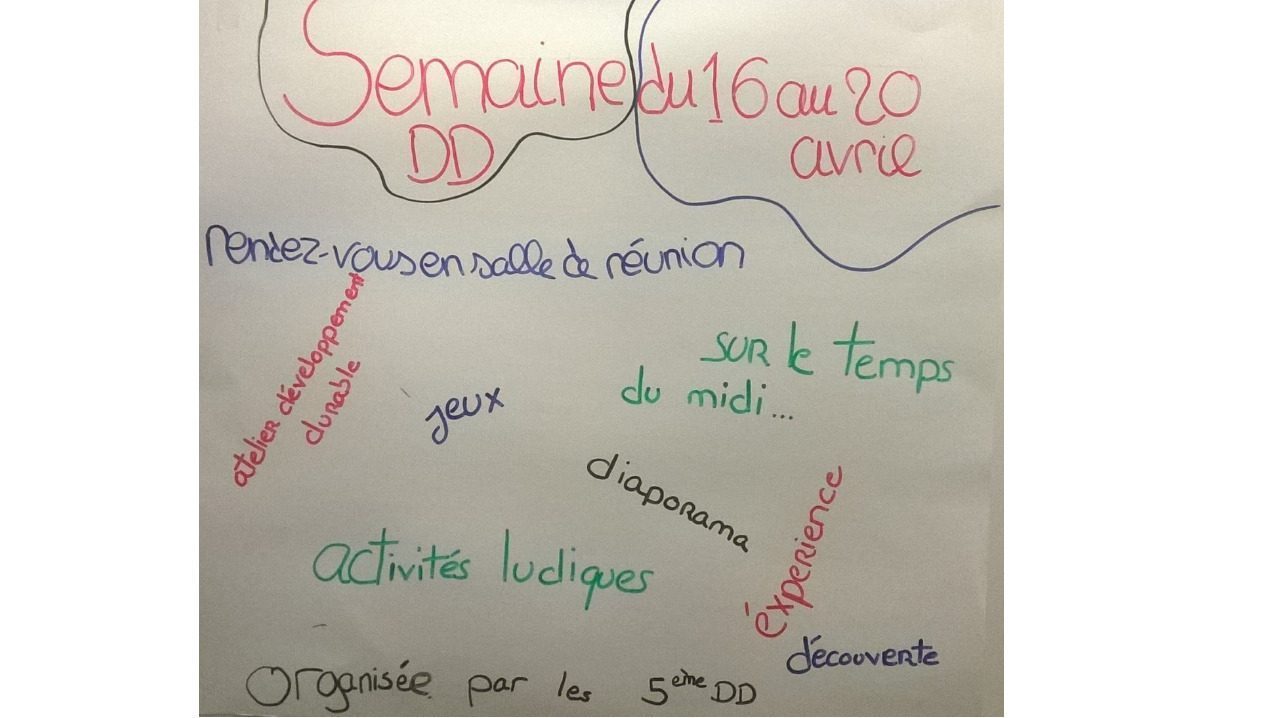 Semaine du 16 au 20
DD avril
rendez-vous en salle de réunion
atelier développement
durable
jeux
SUR le temps
du midi...
diaporama
éxperience
activités ludiques
découverte
Organisée par les 5ème DD